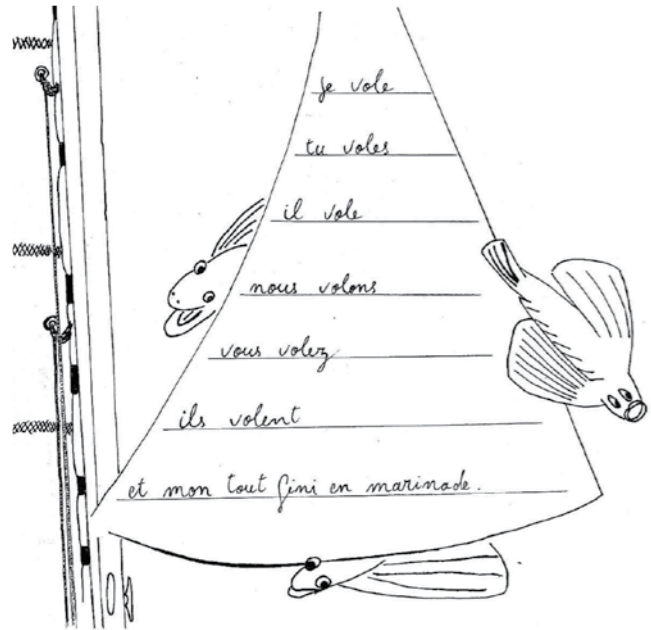 je vole
tu voles
il vole
nous volons
vous volez
ils volent
et mon tout fini en marinade.